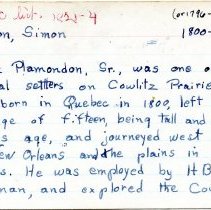 list. 1831-4 (or 1796
on, Simon 1800-
Plamondon, Sr., was one o
al settlers on Cowlitz Prairie
born in Quebec in 1800, left
ge of fifteen, being tall and
s age, and journeyed west
ew Orleans and the plains in
s. He was employed by H B
man, and explored the Cow